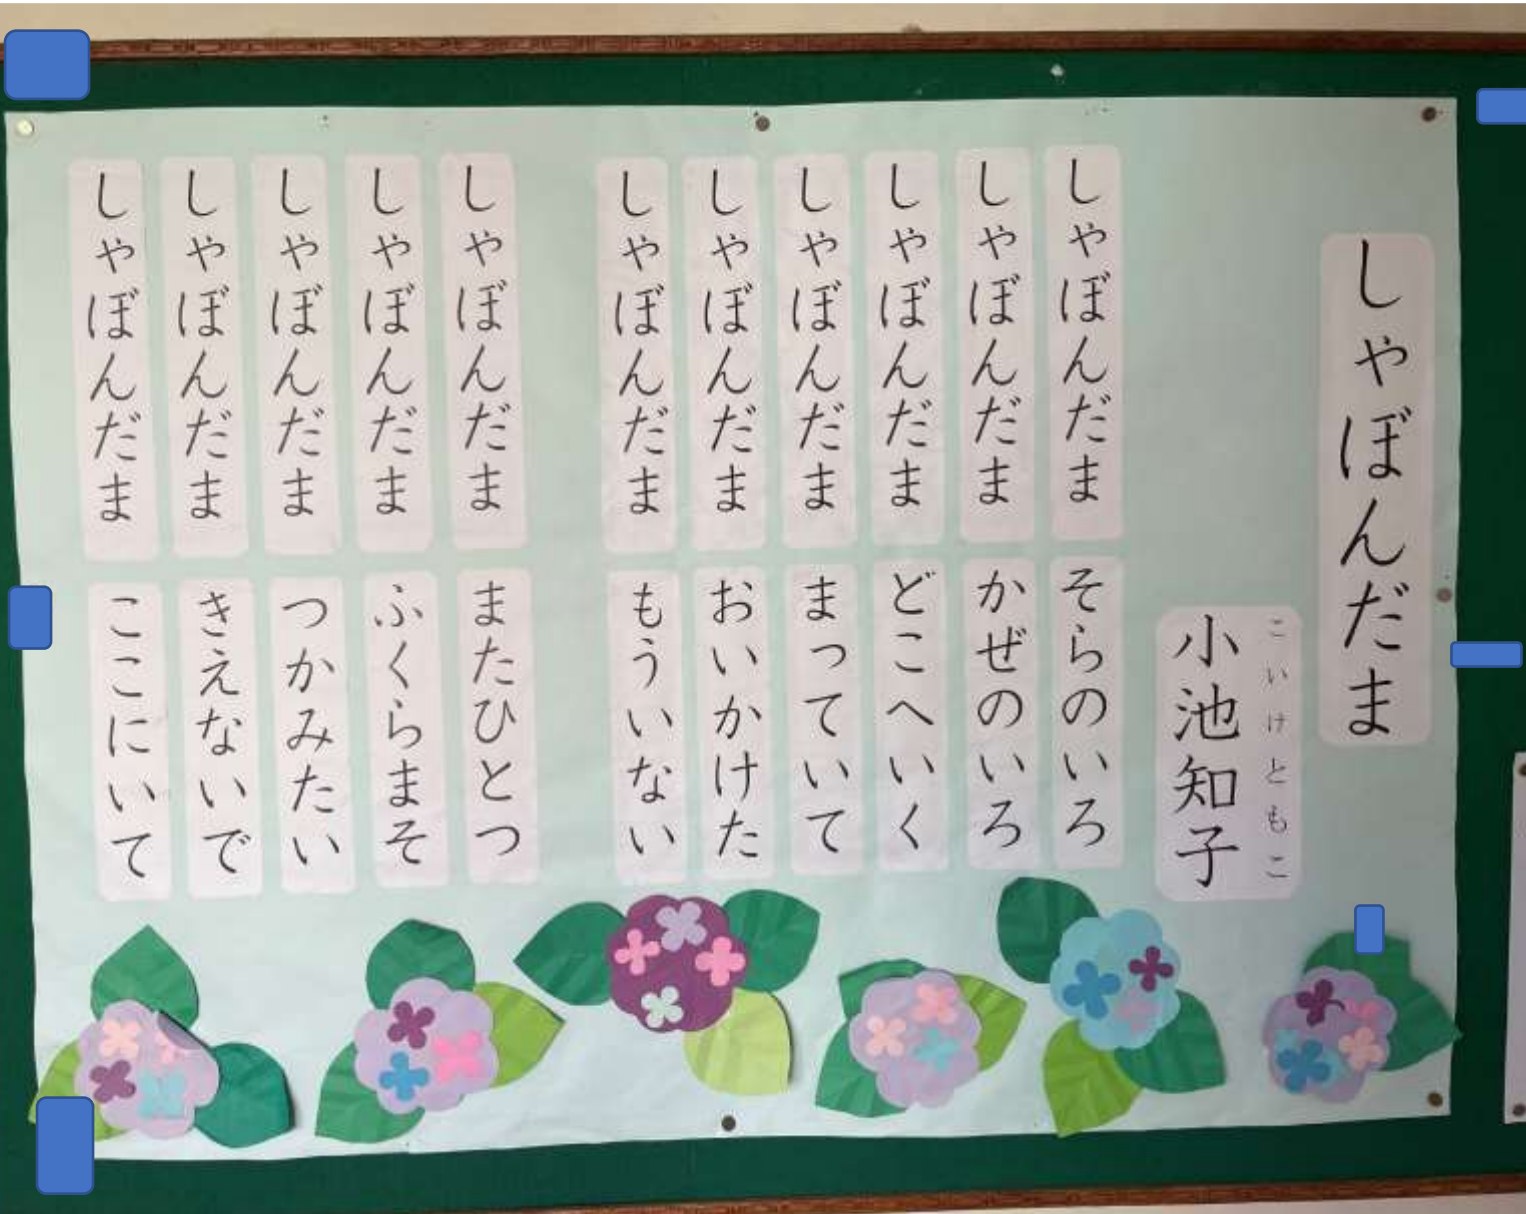 しゃぼんだま
こいけともこ
小池知子
しゃぼんだま
そらのいろ
しゃぼんだま
かぜのいろ
しゃぼんだま
どこへいく
しゃぼんだま
まっていて
しゃぼんだま
おいかけた
しゃぼんだま
もういない
しゃぼんだま
またひとつ
しゃぼんだま
ふくらまそ
しゃぼんだま
つかみたい
しゃぼんだま
きえないで
しゃぼんだま
ここにいて